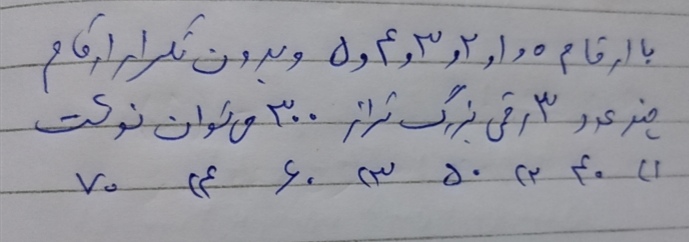 با ارقام ۰ و ۱ و ۲ و ۳ و ۴ و ۵ و بدون تکرار ارقام
چند عدد ۳ رقمی بزرگ تر از ۳۰۰ می توان نوشت
۱) ۴۰ ۲) ۵۰ ۳) ۶۰ ۴) ۷۰